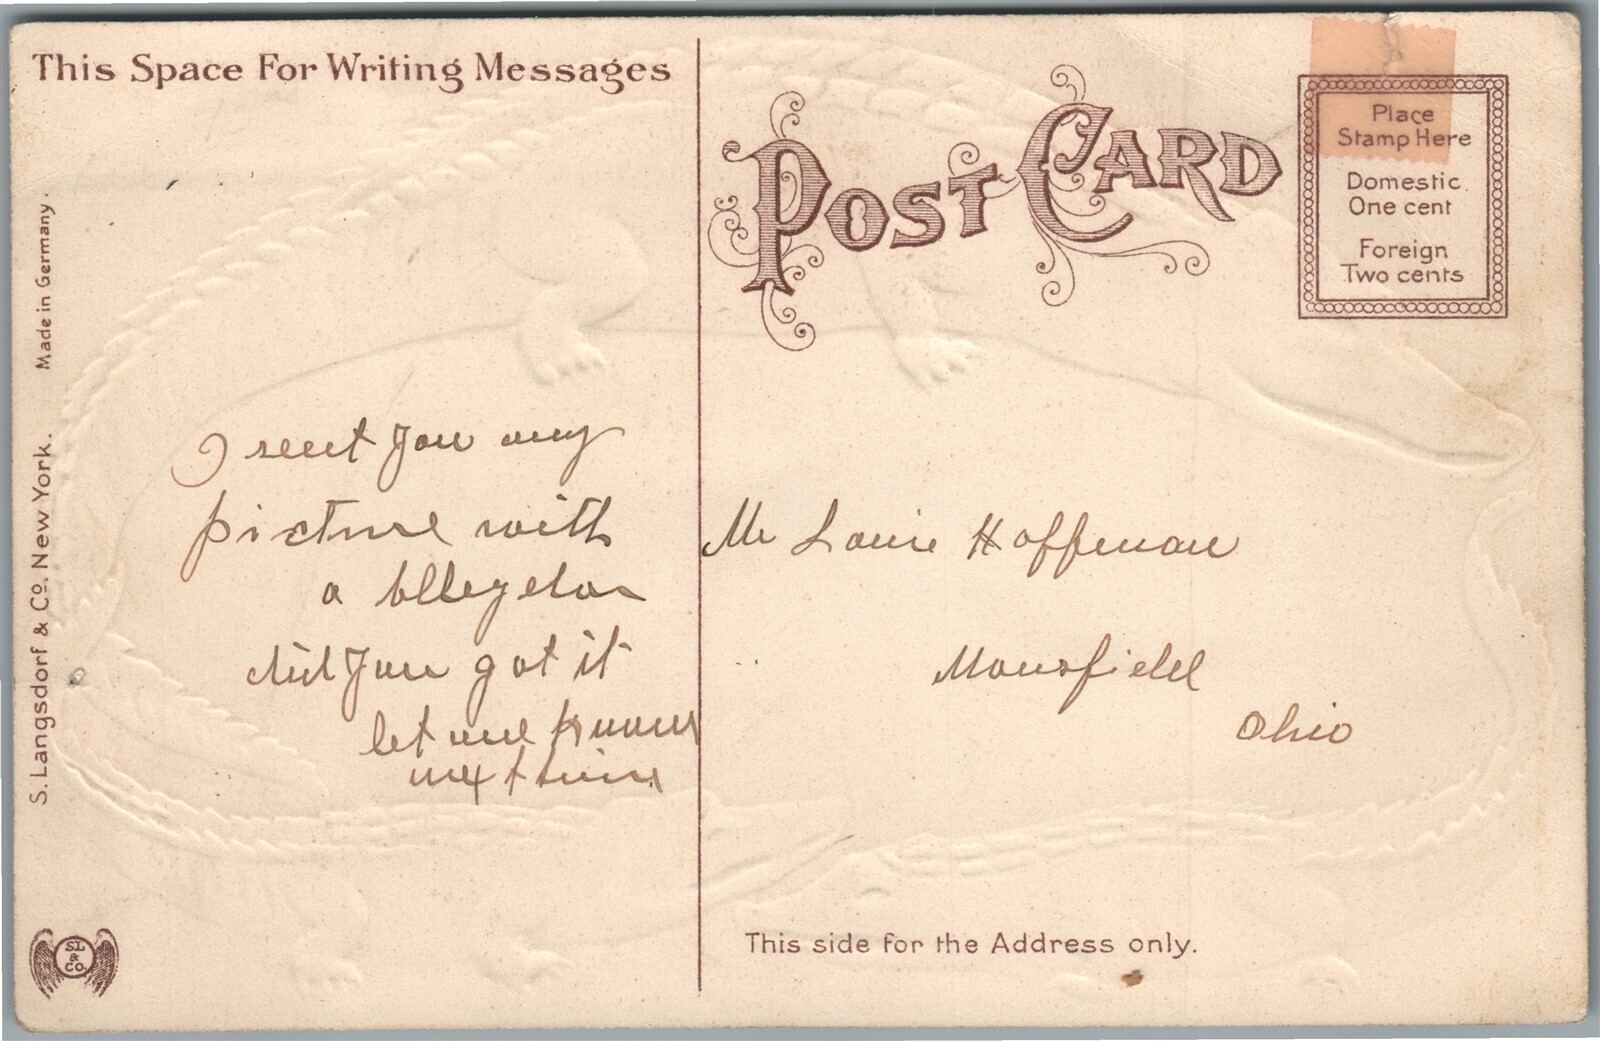 This Space For Writing Messages
POST CARD
Place
Stamp Here
Domestic
One cent
Foreign
Two cents
Made in Germany.
S. Langsdorf & Co. New York.
I sent you my
picture with
a
did you got it
let me know
next time
Mr Louie Hoffman
Mansfield
Ohio
This side for the Address only.
S.L
&
Co.